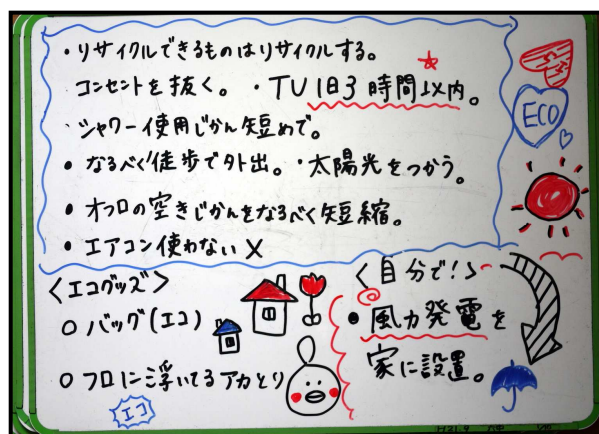 ・リサイクルできるものはリサイクルする。
コンセントを抜く。 ・TV1日3時間以内。
・シャワー使用じかん短めで。
・なるべく徒歩で外出。・太陽光をつかう。
・オフロの空きじかんをなるべく短縮。
・エアコン使わない×
ECO
<エコグッズ>
○バッグ(エコ)
○フロに浮いてるアカとり
エコ
<自分で!>
・風力発電を
家に設置。